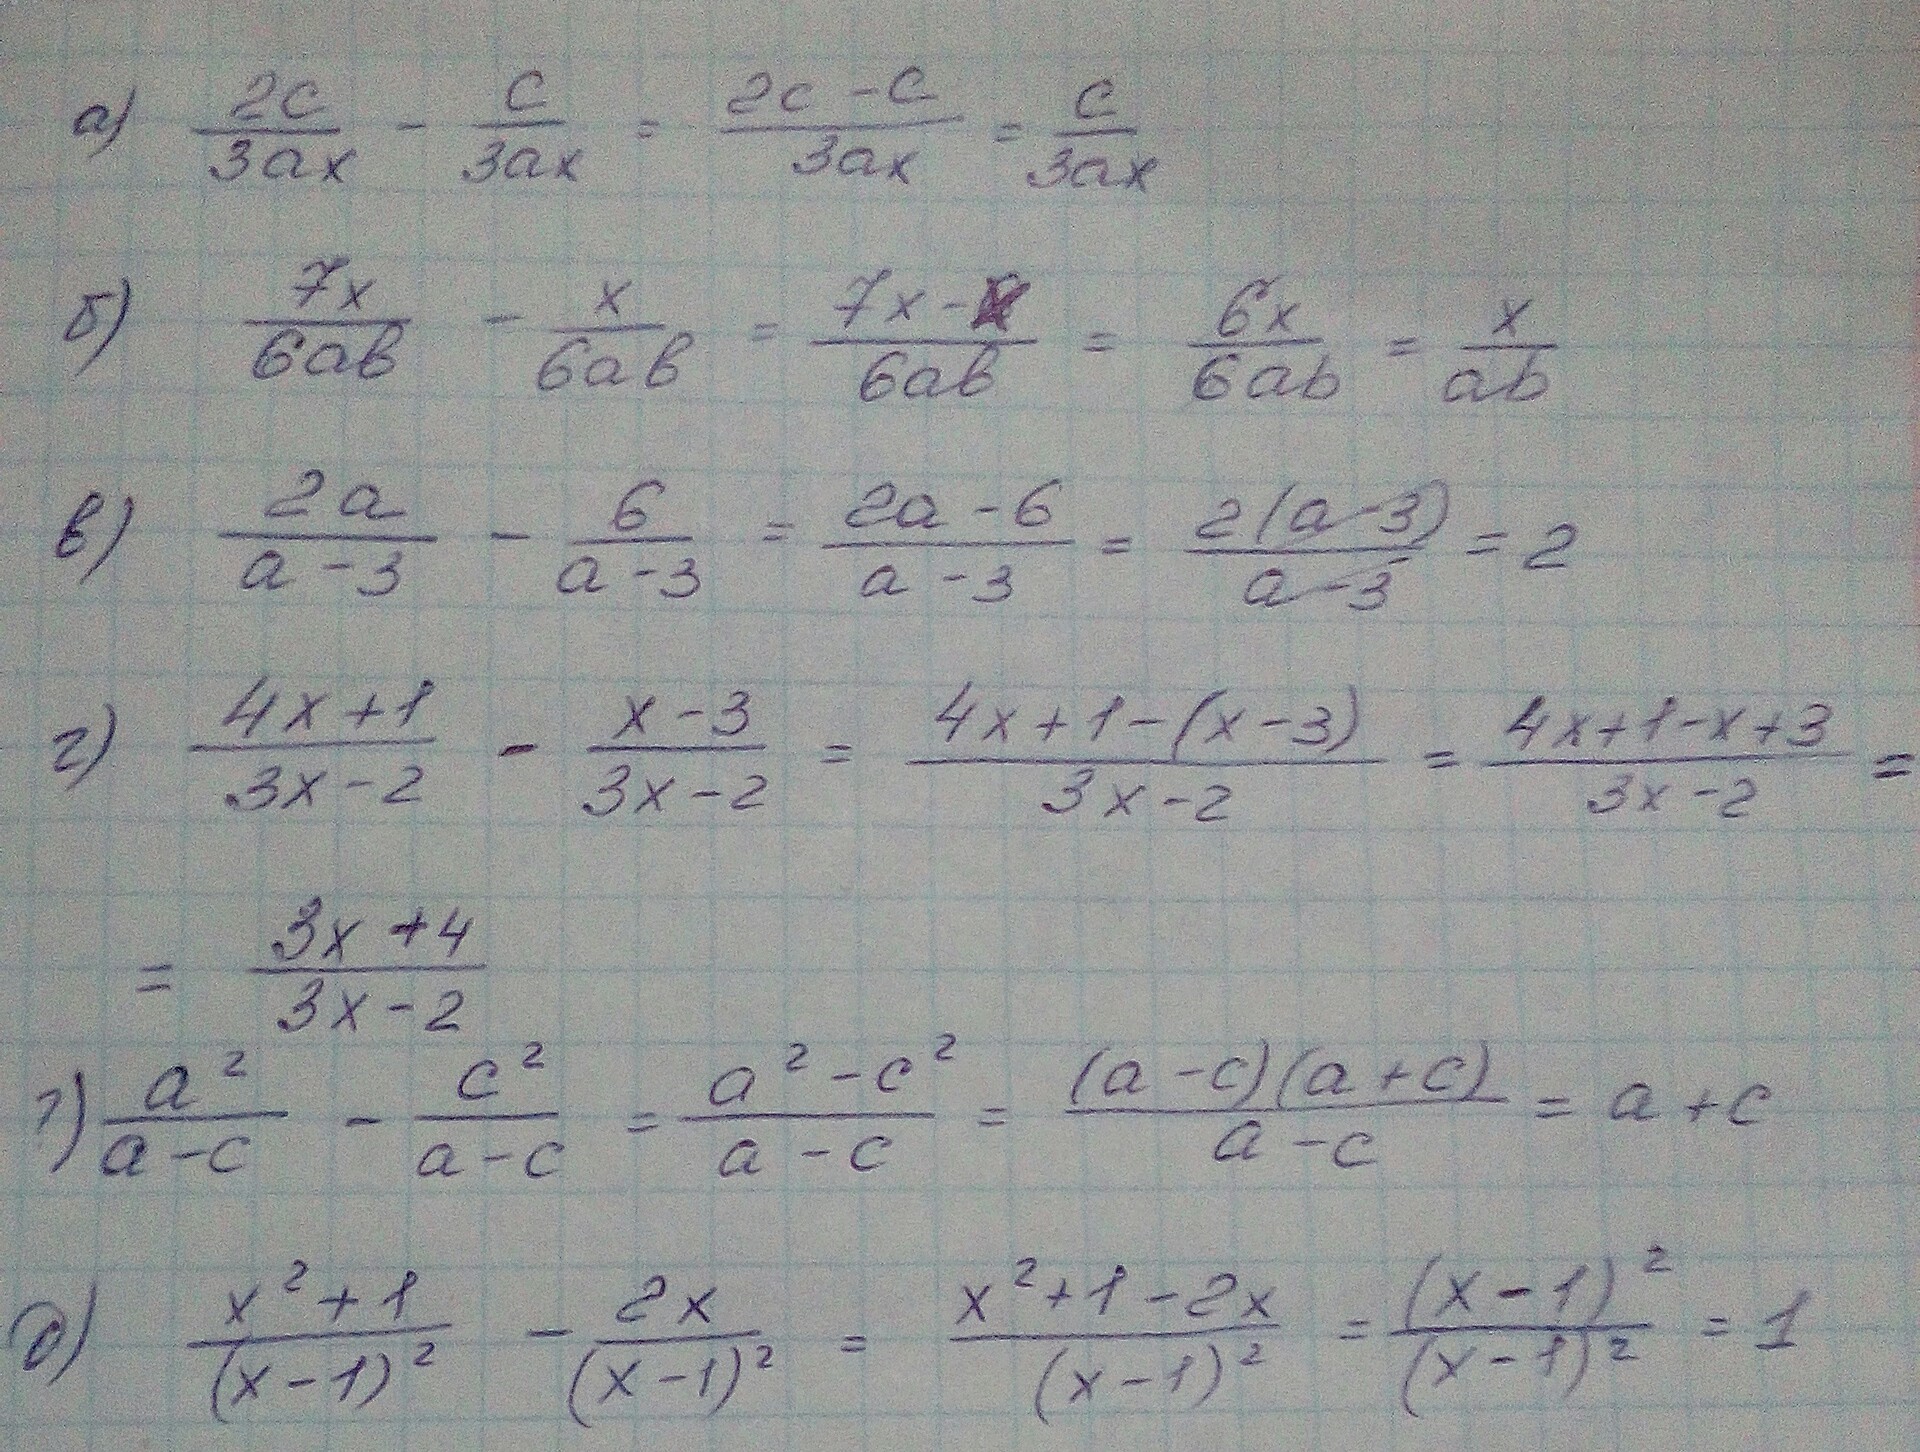 а) 2c/3ax - c/3ax = 2c - c/3ax = c/3ax
б) 7x/6ab - x/6ab = 7x - x/6ab = 6x/6ab = x/ab
в) 2a/a - 3 - 6/a - 3 = 2a - 6/a - 3 = 2(a - 3)/a - 3 = 2
г) 4x + 1/3x - 2 - x - 3/3x - 2 = 4x + 1 - (x - 3)/3x - 2 = 4x + 1 - x + 3/3x - 2 =
= 3x + 4/3x - 2
г) a²/a - c - c²/a - c = a² - c²/a - c = (a - c)(a + c)/a - c = a + c
д) x² + 1/(x - 1)² - 2x/(x - 1)² = x² + 1 - 2x/(x - 1)² = (x - 1)²/(x - 1)² = 1